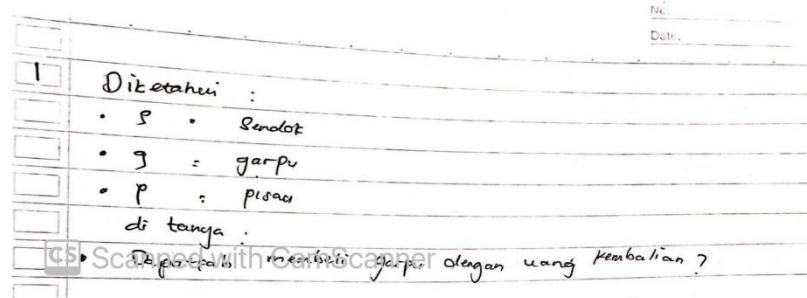 No.
Date.
1
Diketahui :
• s • Sendok
• g = garpu
• p : pisau
di tanya :
• Dapatkah membeli garpu dengan uang kembalian ?
CS Scanned with CamScanner